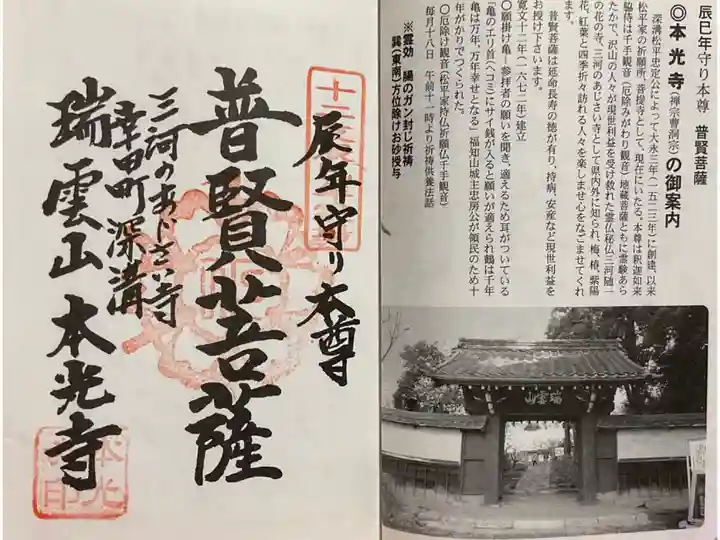 辰巳年守り本尊　普賢菩薩
◎本光寺（禅宗曹洞宗）の御案内
深溝松平忠定公によって大永三年（一五二三年）に創建、以来
松平家の祈願所、菩提寺として、現在にいたる。本尊は釈迦如来
脇侍は千手観音（厄除みがわり観音）地蔵菩薩ともに霊験あら
たかで、沢山の人々が現世利益を受け救れた霊仏秘仏三河随一
の花の寺、三河のあじさい寺として県内外に知られ、梅、椿、紫陽
花、紅葉と四季折々訪れる人々を楽しませ心をなごませてくれ
ます。
普賢菩薩は延命長寿の徳が有り、持病、安産など現世利益を
お授け下さいます。
寛文十二年（一六七二年）建立
○願掛け亀―参拝者の願いを聞き、適えるため耳がついている
「亀のエリ首（ヘコミ）にサイ銭が入ると願いが適えられ鶴は千年
亀は万年、万年幸せとなる」福知山城主忠房公が領民のため十
年がかりでつくられた。
○厄除け観音（松平家持仏祈願仏千手観音）
毎月十八日　午前十一時より祈祷供養法話
※霊効　腸のガン封じ祈祷
巽（東南）方位除けお砂授与
瑞雲山
辰年守り本尊
普賢菩薩
三河のあじさい寺
幸田町深溝
瑞雲山本光寺